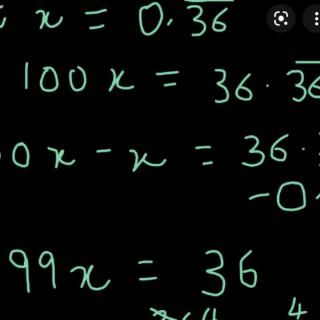 x = 0.3̅6̅
100x = 36.3̅6̅
0x - x = 36.
-0
99x = 36
4